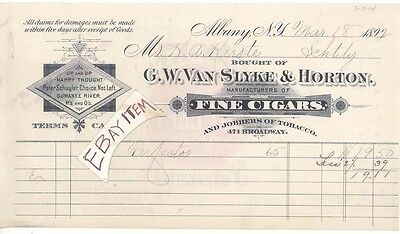 5-3-08
All claims for damages must be made
within five days after receipt of Goods.
Albany, N.Y. Mar 18 1892
M
BOUGHT OF
G.W. VAN SLYKE & HORTON,
MANUFACTURERS OF
FINE CIGARS,
AND JOBBERS OF TOBACCO,
471 BROADWAY.
UP AND UP
HAPPY THOUGHT
Peter Schuyler, Choice Not Left.
SUWANEE RIVER.
P's AND Q's.
TERMS CA
EBAY ITEM
Perfectos 65 19.50
Less 2% 39
19.11